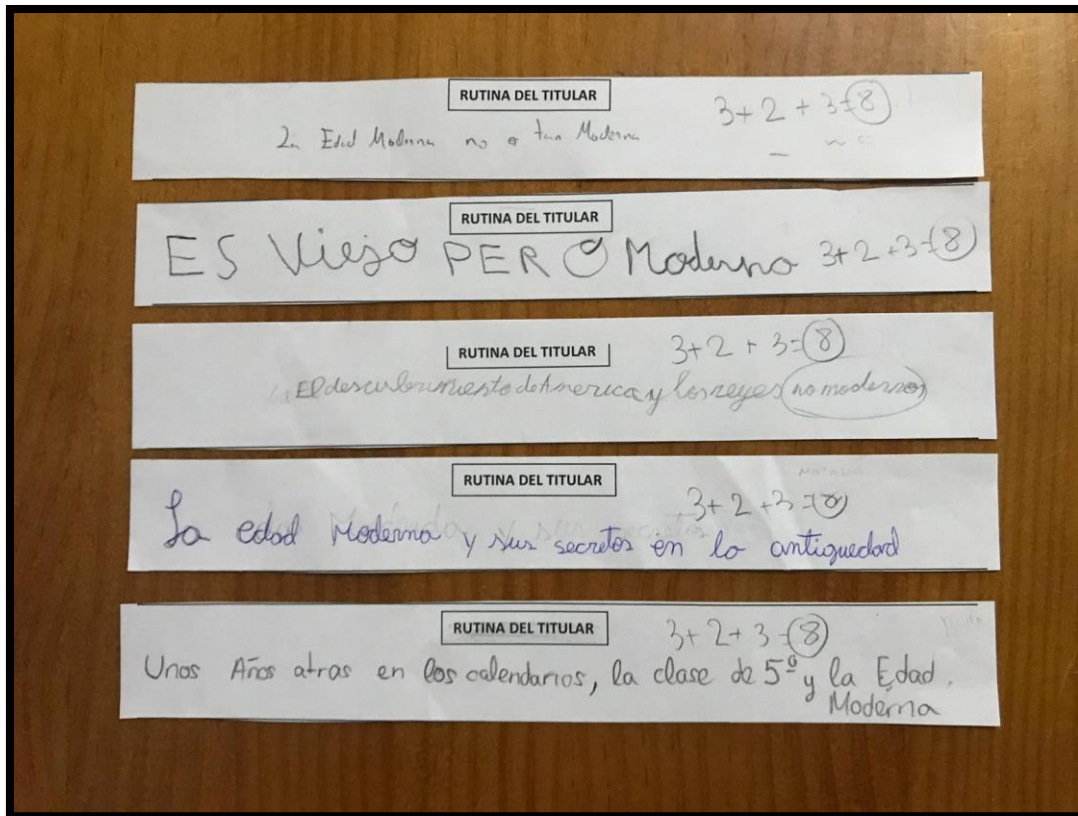 RUTINA DEL TITULAR
3+2+3=8
La Edad Moderna no es tan Moderna
RUTINA DEL TITULAR
ES Viejo PERO Moderno 3+2+3=8
RUTINA DEL TITULAR
3+2+3=8
El descubrimiento de America y los reyes no modernos
RUTINA DEL TITULAR
3+2+3=8
La edad Moderna y sus secretos en la antiguedad
RUTINA DEL TITULAR
3+2+3=8
Unos Años atras en los calendarios, la clase de 5º y la Edad.
Moderna